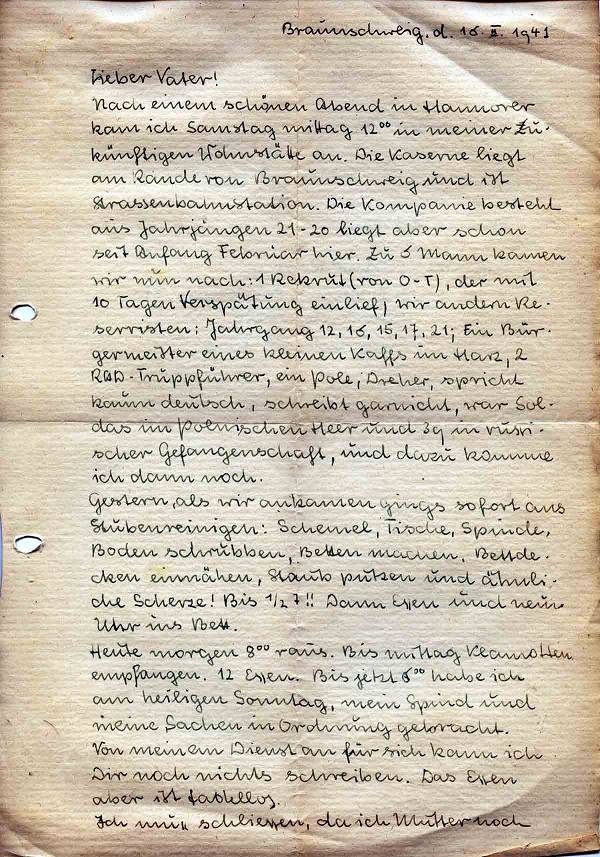 Braunschweig, d. 16. II. 1941
Lieber Vater!
Nach einem schönen Abend in Hannover
kam ich Samstag mittag 12⁰⁰ in meiner Zu-
künftigen Wohnstätte an. Die Kaserne liegt
am Rande von Braunschweig und ist
Strassenbahnstation. Die Kompanie besteht
aus Jahrgängen 21-20 liegt aber schon
seit Anfang Februar hier. Zu 6 Mann kamen
wir nun nach: 1 Rekrut (von O-T), der mit
10 Tagen Verspätung einlief, wir andern Re-
serristen: Jahrgang 12, 16, 15, 17, 21; Ein Bür-
germeister eines kleinen Kaffs im Harz, 2
RAD-Truppführer, ein Pole, Dreher, spricht
kaum deutsch, schreibt garnicht, war Sol-
das im polnischen Heer und 39 in russi-
scher Gefangenschaft, und dazu komme
ich dann noch.
Gestern, als wir ankamen gings sofort ans
Stubenreinigen: Schemel, Tische, Spinde,
Boden schrubben, Betten machen. Bettde-
cken einnähen, Staub putzen und ähnli-
che Scherze! Bis 1/2 7!! Dann Essen und neun
Uhr ins Bett.
Heute morgen 8⁰⁰ raus. Bis mittag Klamotten
empfangen. 12 Essen. Bis jetzt 6⁰⁰ habe ich
am heiligen Sonntag, mein Spind und
meine Sachen in Ordnung gebracht.
Von meinem Dienst an für sich kann ich
Dir noch nichts schreiben. Das Essen
aber ist tadellos.
Ich muss schliessen, da ich Mutter noch